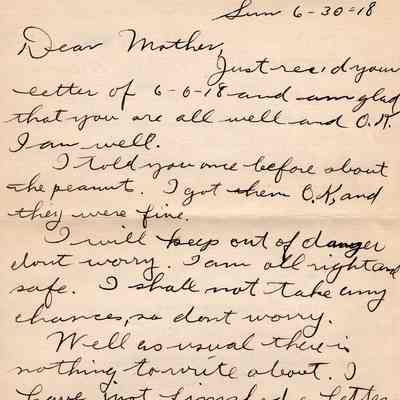 Sun 6-30=18
Dear Mother,
Just rec'd your
letter of 6-6-18 and am glad
that you are all well and O.K.
I am well.
I told you once before about
the peanut. I got them O.K, and
they were fine.
I will keep out of danger
dont worry. I am all right and
safe. I shall not take any
chances, so dont worry.
Well as usual there is
nothing to write about. I
have just finished a letter